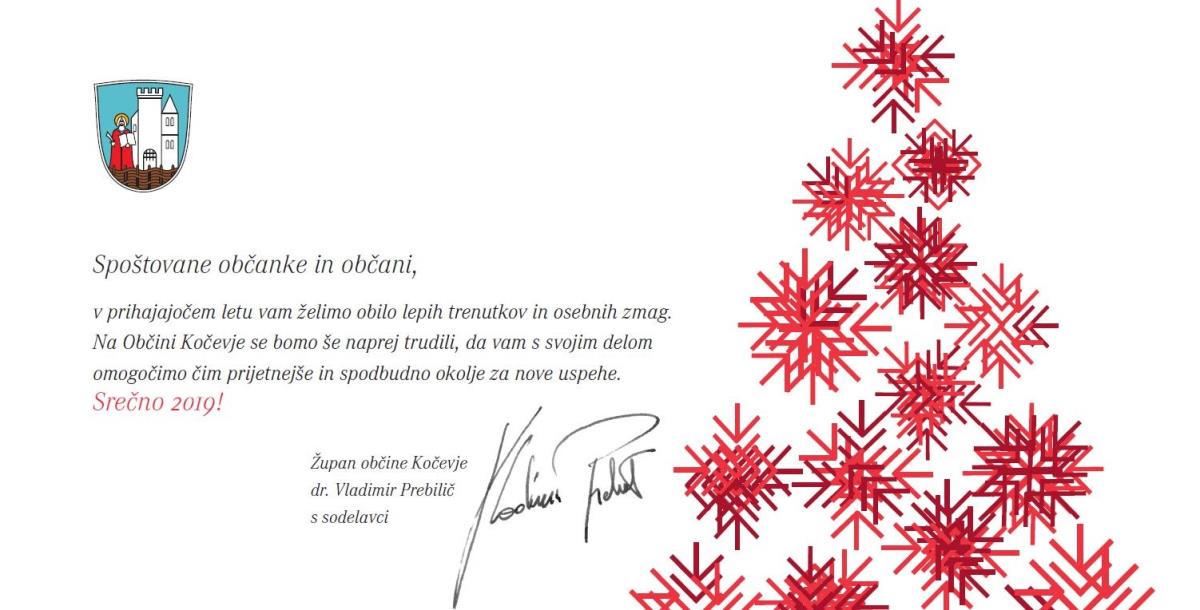 Spoštovane občanke in občani,
v prihajajočem letu vam želimo obilo lepih trenutkov in osebnih zmag.
Na Občini Kočevje se bomo še naprej trudili, da vam s svojim delom
omogočimo čim prijetnejše in spodbudno okolje za nove uspehe.
Srečno 2019!
Župan občine Kočevje
dr. Vladimir Prebilič
s sodelavci